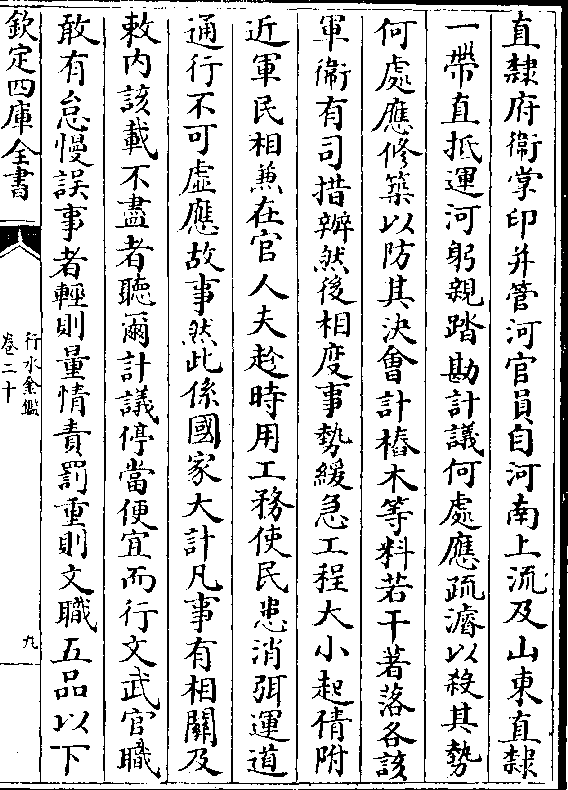 直隸府衞掌印并管河官員自河南上流及山東直隸
一帶直抵運河躬親踏勘計議何處應疏濬以殺其勢
何處應修築以防其決會計樁木等料若干著落各該
軍衞有司措辦然後相度事勢緩急工程大小起倩附
近軍民相兼在官人夫趁時用工務使民患消弭運道
通行不可虛應故事然此係國家大計凡事有相關及
敕内該載不盡者聽爾計議停當便宜而行文武官職
敢有怠慢誤事者輕則量情責罰重則文職五品以下
欽定四庫全書
行水金鑑
卷二十
九